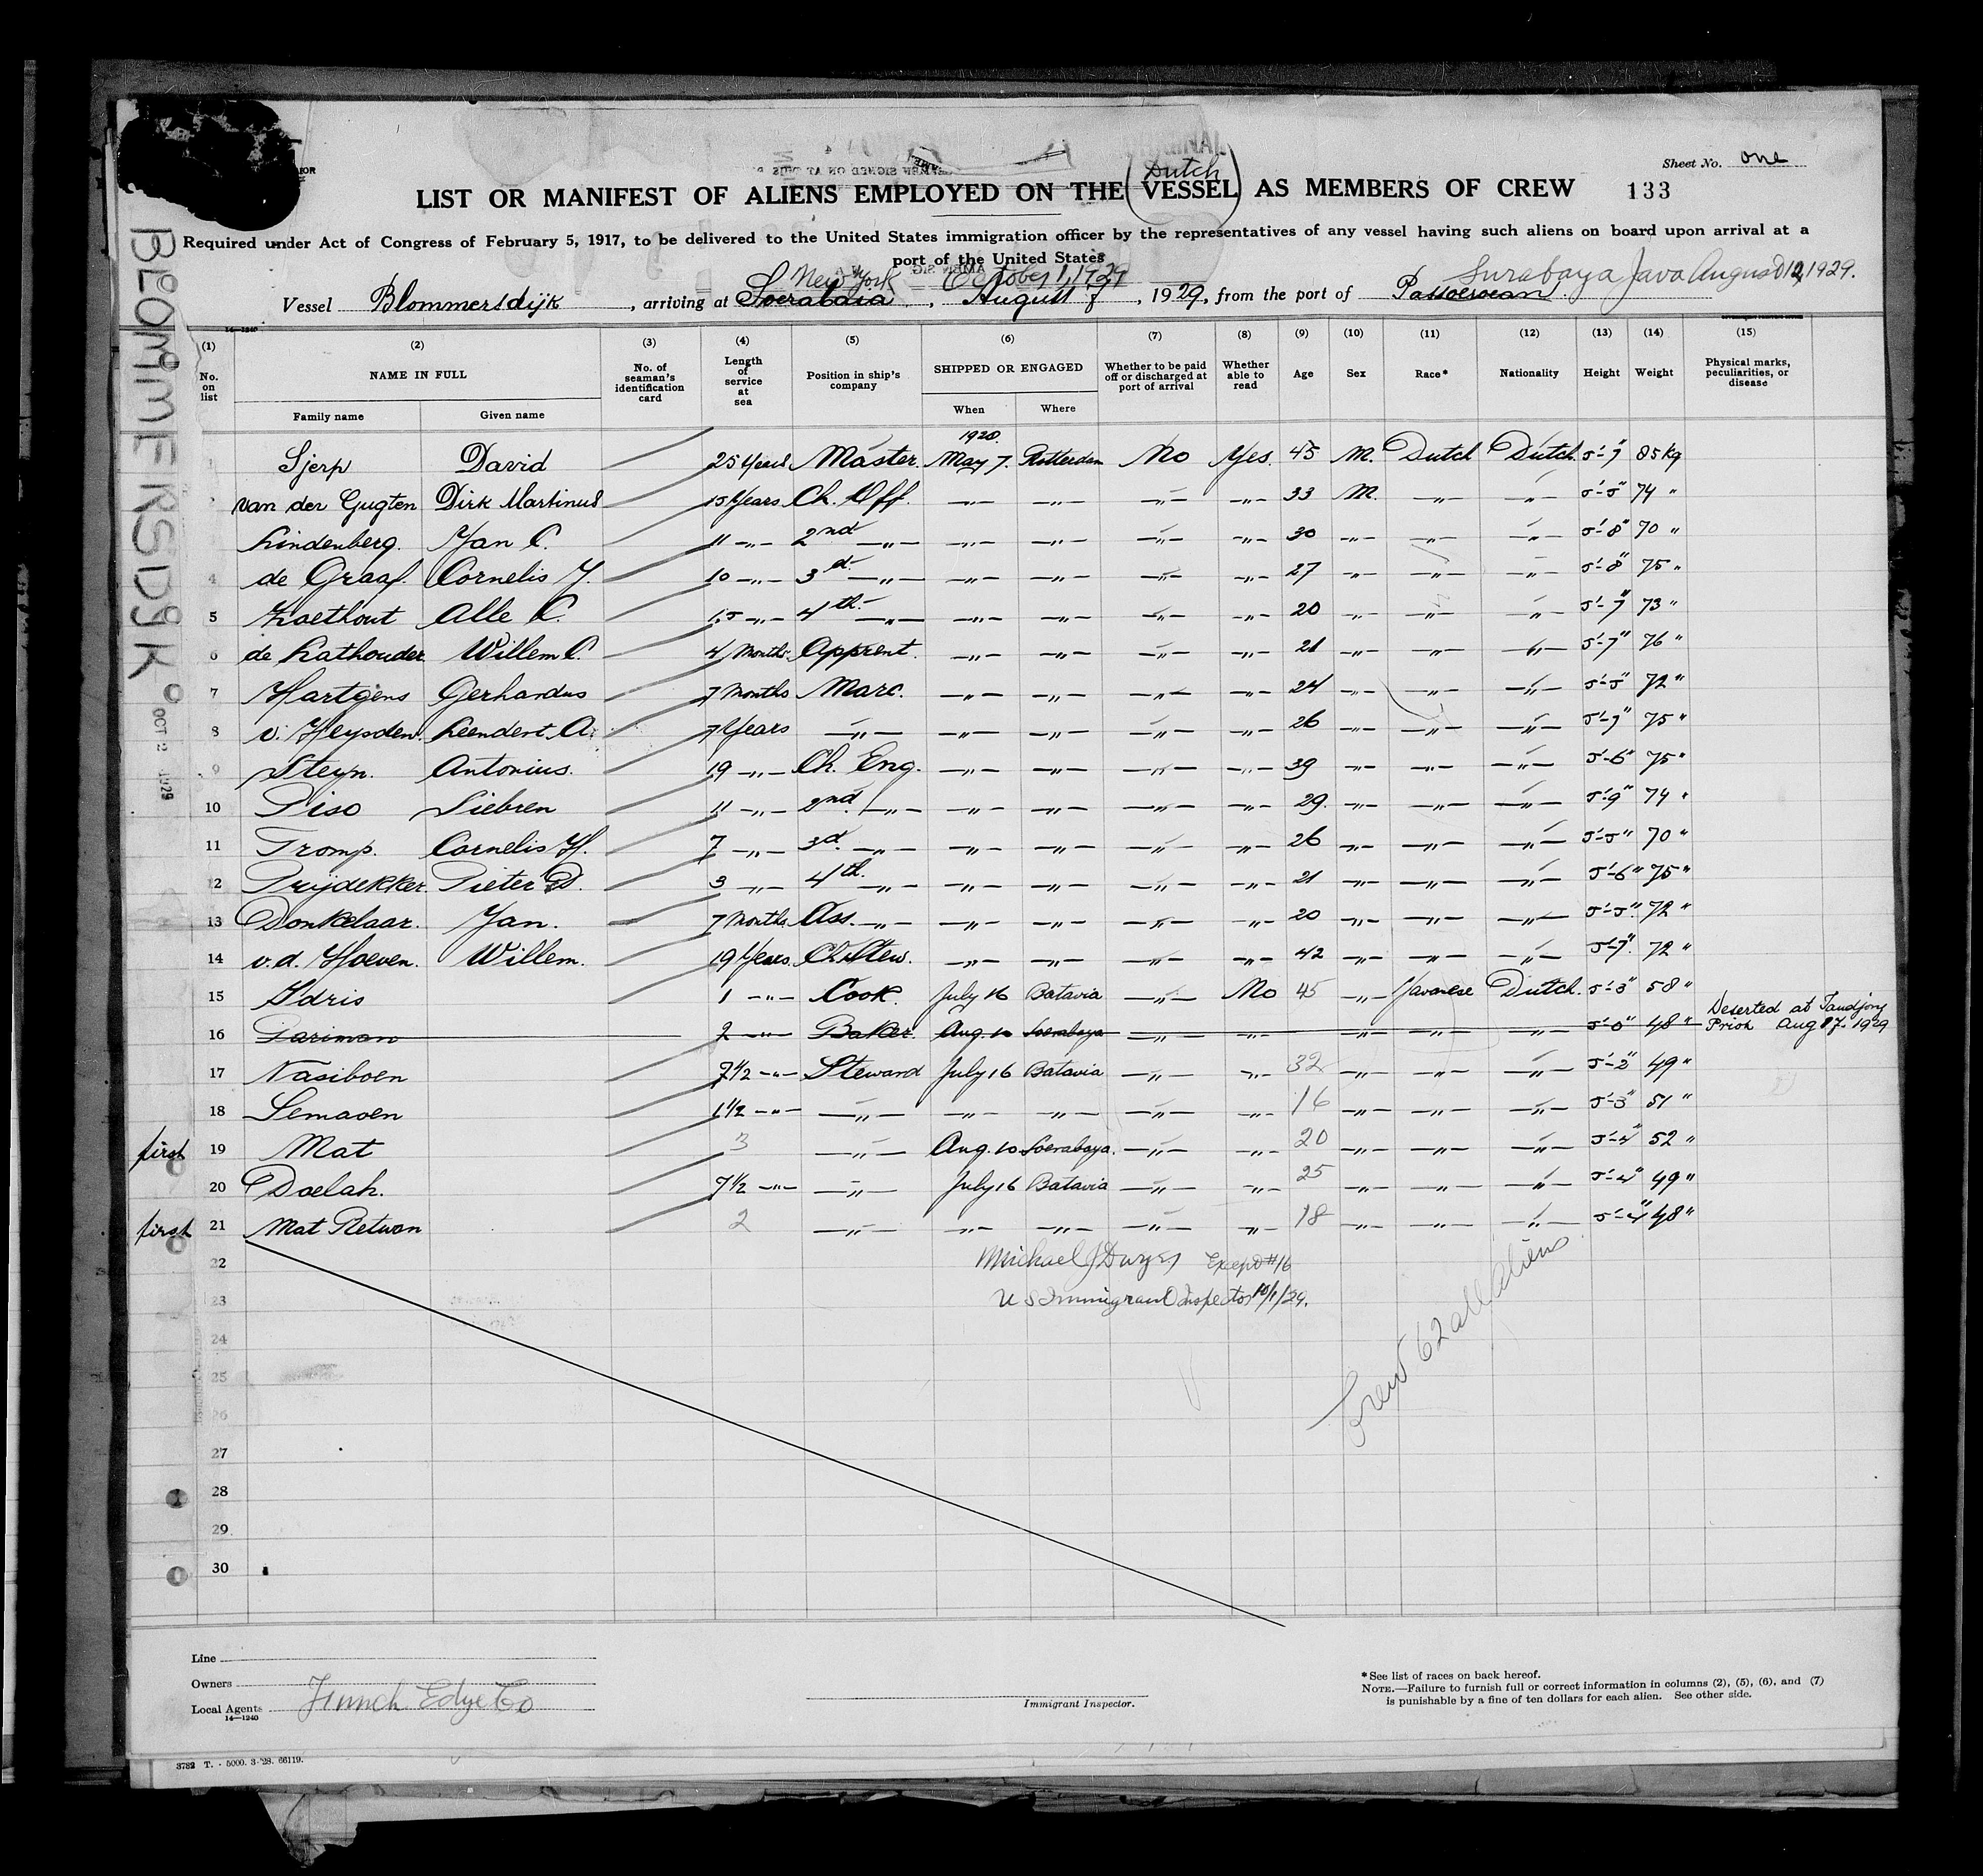 Sheet No. one
(Dutch)
LIST OR MANIFEST OF ALIENS EMPLOYED ON THE VESSEL AS MEMBERS OF CREW 133
Required under Act of Congress of February 5, 1917, to be delivered to the United States immigration officer by the representatives of any vessel having such aliens on board upon arrival at a
port of the United States
New York October 1, 1929 Surabaya Java August 12, 1929.
Vessel Blommersdijk, arriving at Soerabaia, August 7, 1929, from the port of Passoeroean.
BLOMMERSDYK
OCT 2 1929
14—1240
(1) (2) (3) (4) (5) (6) (7) (8) (9) (10) (11) (12) (13) (14) (15)
No. on list NAME IN FULL Family name Given name No. of seaman's identification card Length of service at sea Position in ship's company SHIPPED OR ENGAGED When Where Whether to be paid off or discharged at port of arrival Whether able to read Age Sex Race* Nationality Height Weight Physical marks, peculiarities, or disease
1928.
1 Sjerp David 25 Years Master. May 7. Rotterdam No Yes. 45 M. Dutch Dutch. 5'-7" 85 kg
2 van der Gugten Dirk Martinus 15 Years Ch. Off. —„— —„— —„— —„— 33 M. —„— —„— 5'-5" 74 "
Lindenberg. Jan C. 11 —„— 2nd —„— —„— —„— —„— —„— 30 —„— —„— —„— 5'-8" 70 "
4 de Graaf. Cornelis J. 10 —„— 3d. —„— —„— —„— —„— —„— 27 —„— —„— —„— 5'-8" 75 "
5 Zoethout Alle C. 1.5 —„— 4th. —„— —„— —„— —„— —„— 20 —„— —„— —„— 5'-7" 73 "
6 de Lathouder Willem C. 4 Months Apprent. —„— —„— —„— —„— 21 —„— —„— —„— 5'-7" 76 "
7 Hartgens Gerhardus 7 Months Marc. —„— —„— —„— —„— 24 —„— —„— —„— 5'-5" 72 "
8 v. Heysden. Leendert. A. 7 Years —„— —„— —„— —„— —„— 26 —„— —„— —„— 5'-7" 75 "
9 Steyn. Antonius. 19 —„— Ch. Eng. —„— —„— —„— —„— 39 —„— —„— —„— 5'-6" 75 "
10 Piso Siebren 11 —„— 2nd —„— —„— —„— —„— —„— 29. —„— —„— —„— 5'-9" 74 "
11 Tromp. Cornelis H. 7 —„— 3d. —„— —„— —„— —„— —„— 26 —„— —„— —„— 5'-5" 70 "
12 Prijdekker. Pieter D. 3 —„— 4th. —„— —„— —„— —„— —„— 21 —„— —„— —„— 5'-6" 75 "
13 Donkelaar. Jan. 7 Months Ass. —„— —„— —„— —„— —„— 20 —„— —„— —„— 5'-5" 72 "
14 v.d. Hoeven. Willem. 19 Years. Ch. Stew. —„— —„— —„— —„— 42 —„— —„— —„— 5'-7" 72 "
15 Idris 1 —„— Cook. July 16 Batavia —„— No 45 —„— Javanese Dutch. 5'-3" 58 "
16 Pariman 2 —„— Baker. Aug. 10 Soerabaya —„— —„— —„— —„— —„— 5'-0" 48 " Deserted at Tandjong
Priok Aug 17. 1929
17 Nasiboen 7½ —„— Steward July 16 Batavia —„— —„— 32 —„— —„— —„— 5'-2" 49 "
18 Semaoen 1½ —„— —„— —„— —„— —„— —„— 16 —„— —„— —„— 5'-3" 51 "
first 19 Mat 3 —„— Aug. 10 Soerabaya. —„— —„— 20 —„— —„— —„— 5'-4" 52 "
20 Doelah. 7½ —„— —„— July 16 Batavia —„— —„— 25 —„— —„— —„— 5'-4" 49 "
first 21 Mat Retwon 2 —„— —„— —„— —„— —„— 18 —„— —„— —„— 5'-4" 48 "
22 Michael J Dwyer Except #16
23 U S Immigrant Inspector 10/1/29.
24
25
26
27
28
29
30
Crew 62 all aliens
Line
Owners
Local Agents Funch Edye Co
14—1240
Immigrant Inspector.
*See list of races on back hereof.
NOTE.—Failure to furnish full or correct information in columns (2), (5), (6), and (7)
is punishable by a fine of ten dollars for each alien. See other side.
3782 T. - 5000. 3-'28. 66119.